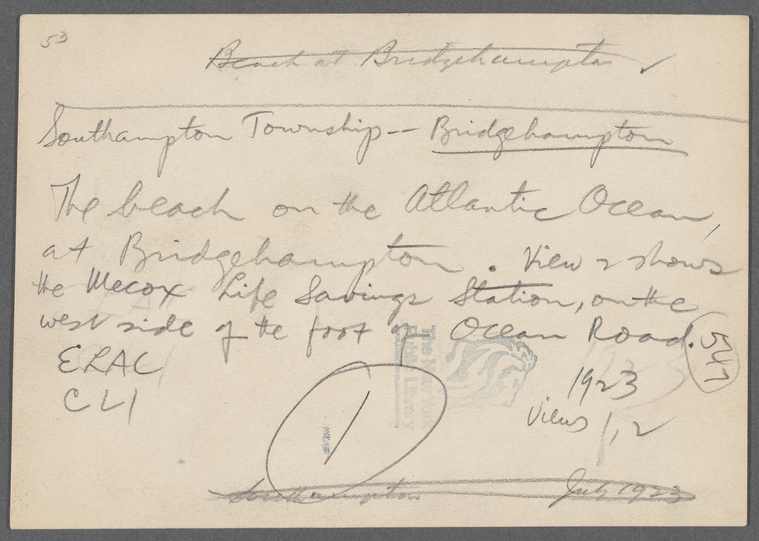 53
Beach at Bridgehampton ✓
Southampton Township -- Bridgehampton
The beach on the Atlantic Ocean,
at Bridgehampton. View 2 shows
the Mecox Life Savings Station, on the
west side of the foot of Ocean Road.
547
CLI
1923
Views 1, 2
1
Southampton July 1923
The New York
Public Library